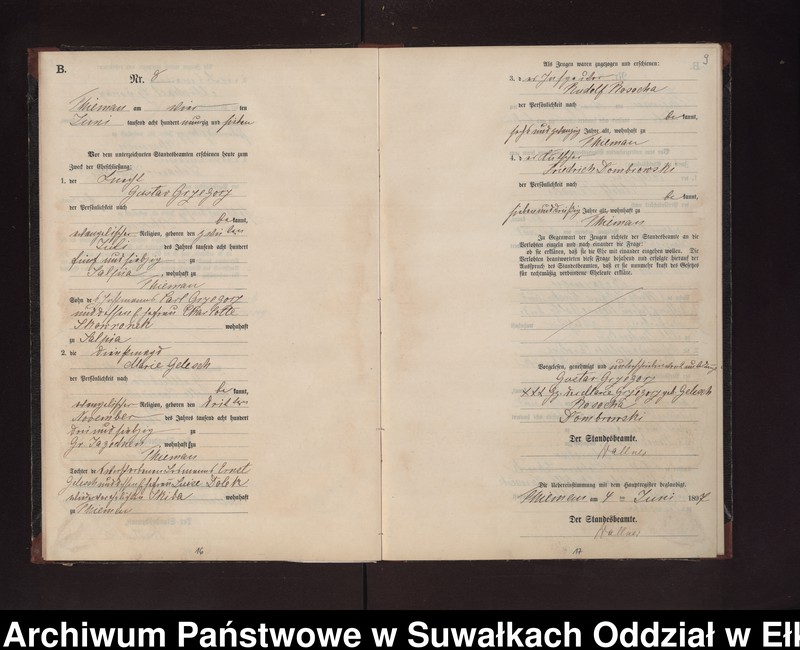 B.
Nr. 8
Thieman am vier ten
Juni tausend acht hundert neunzig und sieben
Vor dem unterzeichneten Standesbeamten erschienen heute zum
Zweck der Eheschließung:
1. der Knecht
Gustav Gryzgorz
der Persönlichkeit nach
be kannt,
evangelischer Religion, geboren den zehnten
Juli des Jahres tausend acht hundert
fünf und siebzig zu
Salpia, wohnhaft zu
Thieman
Sohn des Carl Gryzgorz
und dessen Ehefrau Charlotte
Skowronek wohnhaft
zu Salpia
2. die Dienstmagd
Marie Gelesch
der Persönlichkeit nach
be kannt,
evangelischer Religion, geboren den dritten
November des Jahres tausend acht hundert
drei und siebzig zu
Gr. Jagodnen, wohnhaft zu
Thieman
Tochter des verstorbenen Ernst
Gelesch und dessen Ehefrau Luise
Skiba wohnhaft
zu Thieman
16
9
Als Zeugen waren zugezogen und erschienen:
3. der
Rudolf Kosocha
der Persönlichkeit nach
be kannt,
sechs und zwanzig Jahre alt, wohnhaft zu
Thieman
4. der
Friedrich Dombrowski
der Persönlichkeit nach
be kannt,
sieben und dreißig Jahre alt, wohnhaft zu
Thieman
In Gegenwart der Zeugen richtete der Standesbeamte an die
Verlobten einzeln und nach einander die Frage:
ob sie erklären, daß sie die Ehe mit einander eingehen wollen. Die
Verlobten beantworteten diese Frage bejahend und erfolgte hierauf der
Ausspruch des Standesbeamten, daß er sie nunmehr kraft des Gesetzes
für rechtmäßig verbundene Eheleute erkläre.
Vorgelesen, genehmigt und
Gustav Gryzgorz
+++ Marie Gryzgorz geb. Gelesch
Kosocha
Dombrowski
Der Standesbeamte.
Die Uebereinstimmung mit dem Hauptregister beglaubigt.
Thieman am 4 ten Juni 1897
Der Standesbeamte.
17
Archiwum Państwowe w Suwałkach Oddział w Ełk